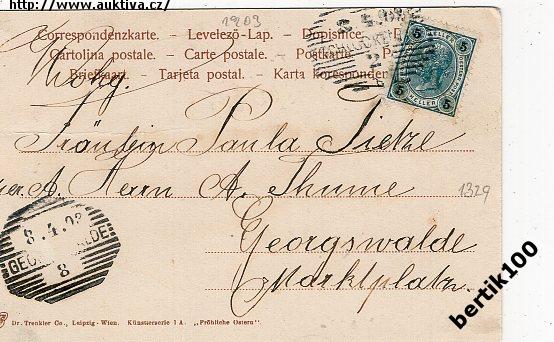 http://www.auktiva.cz/
1903
Correspondenzkarte. – Levelező-Lap. – Dopisnice.
Cartolina postale. – Carte postale. – Postkarte. – Pa
Briefkaart. – Tarjeta postal. – Karta korespondei
5 5
KELLER
HELLER
5 5
Fräulein Paula Tietze
A. Herrn A. Thume
1329
Georgswalde
Marktplatz.
8.4.03
GEO WALDE
8
Dr. Trenkler Co., Leipzig-Wien. Künstlerserie 1 A. „Fröhliche Ostern".
bertik100